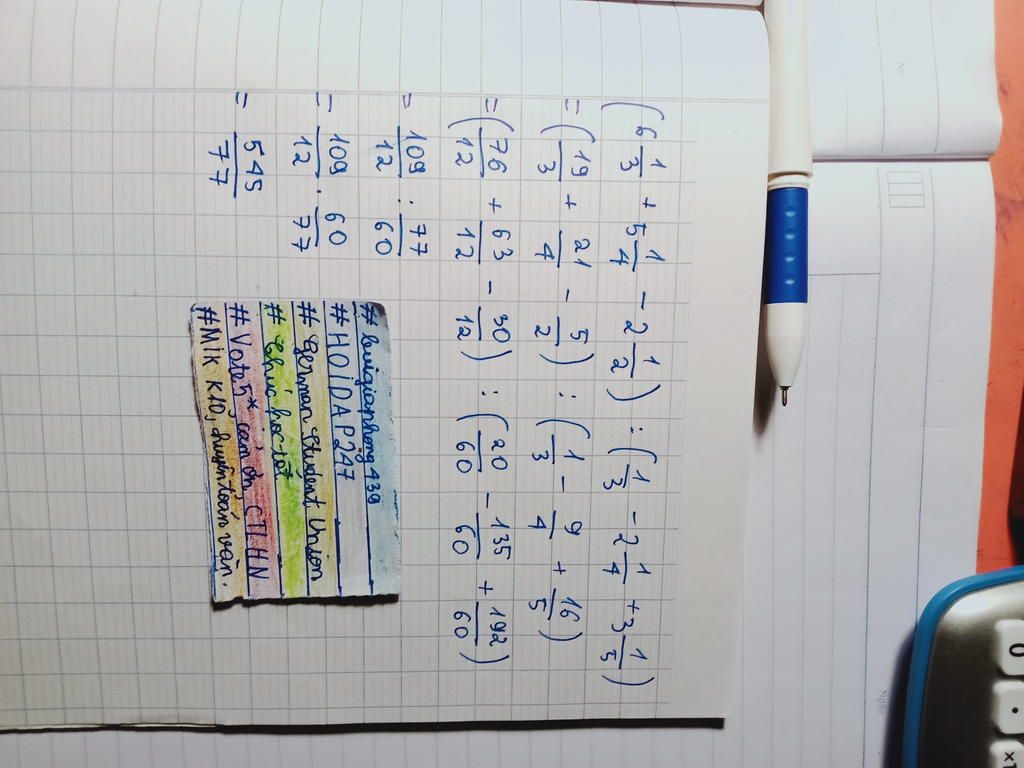 (6 1/3 + 5 1/4 - 2 1/2) : (1/3 - 2 1/4 + 3 1/5)
= (19/3 + 21/4 - 5/2) : (1/3 - 9/4 + 16/5)
= (76/12 + 63/12 - 30/12) : (20/60 - 135/60 + 192/60)
= 109/12 : 77/60
= 109/12 . 60/77
= 545/77
# buigiaphong439
# HOIDAP247
# german student Union
# Chúc học tốt
# Vote 5* cảm ơn, CTLHN
# Mik K10, chuyên toán văn.
0
.